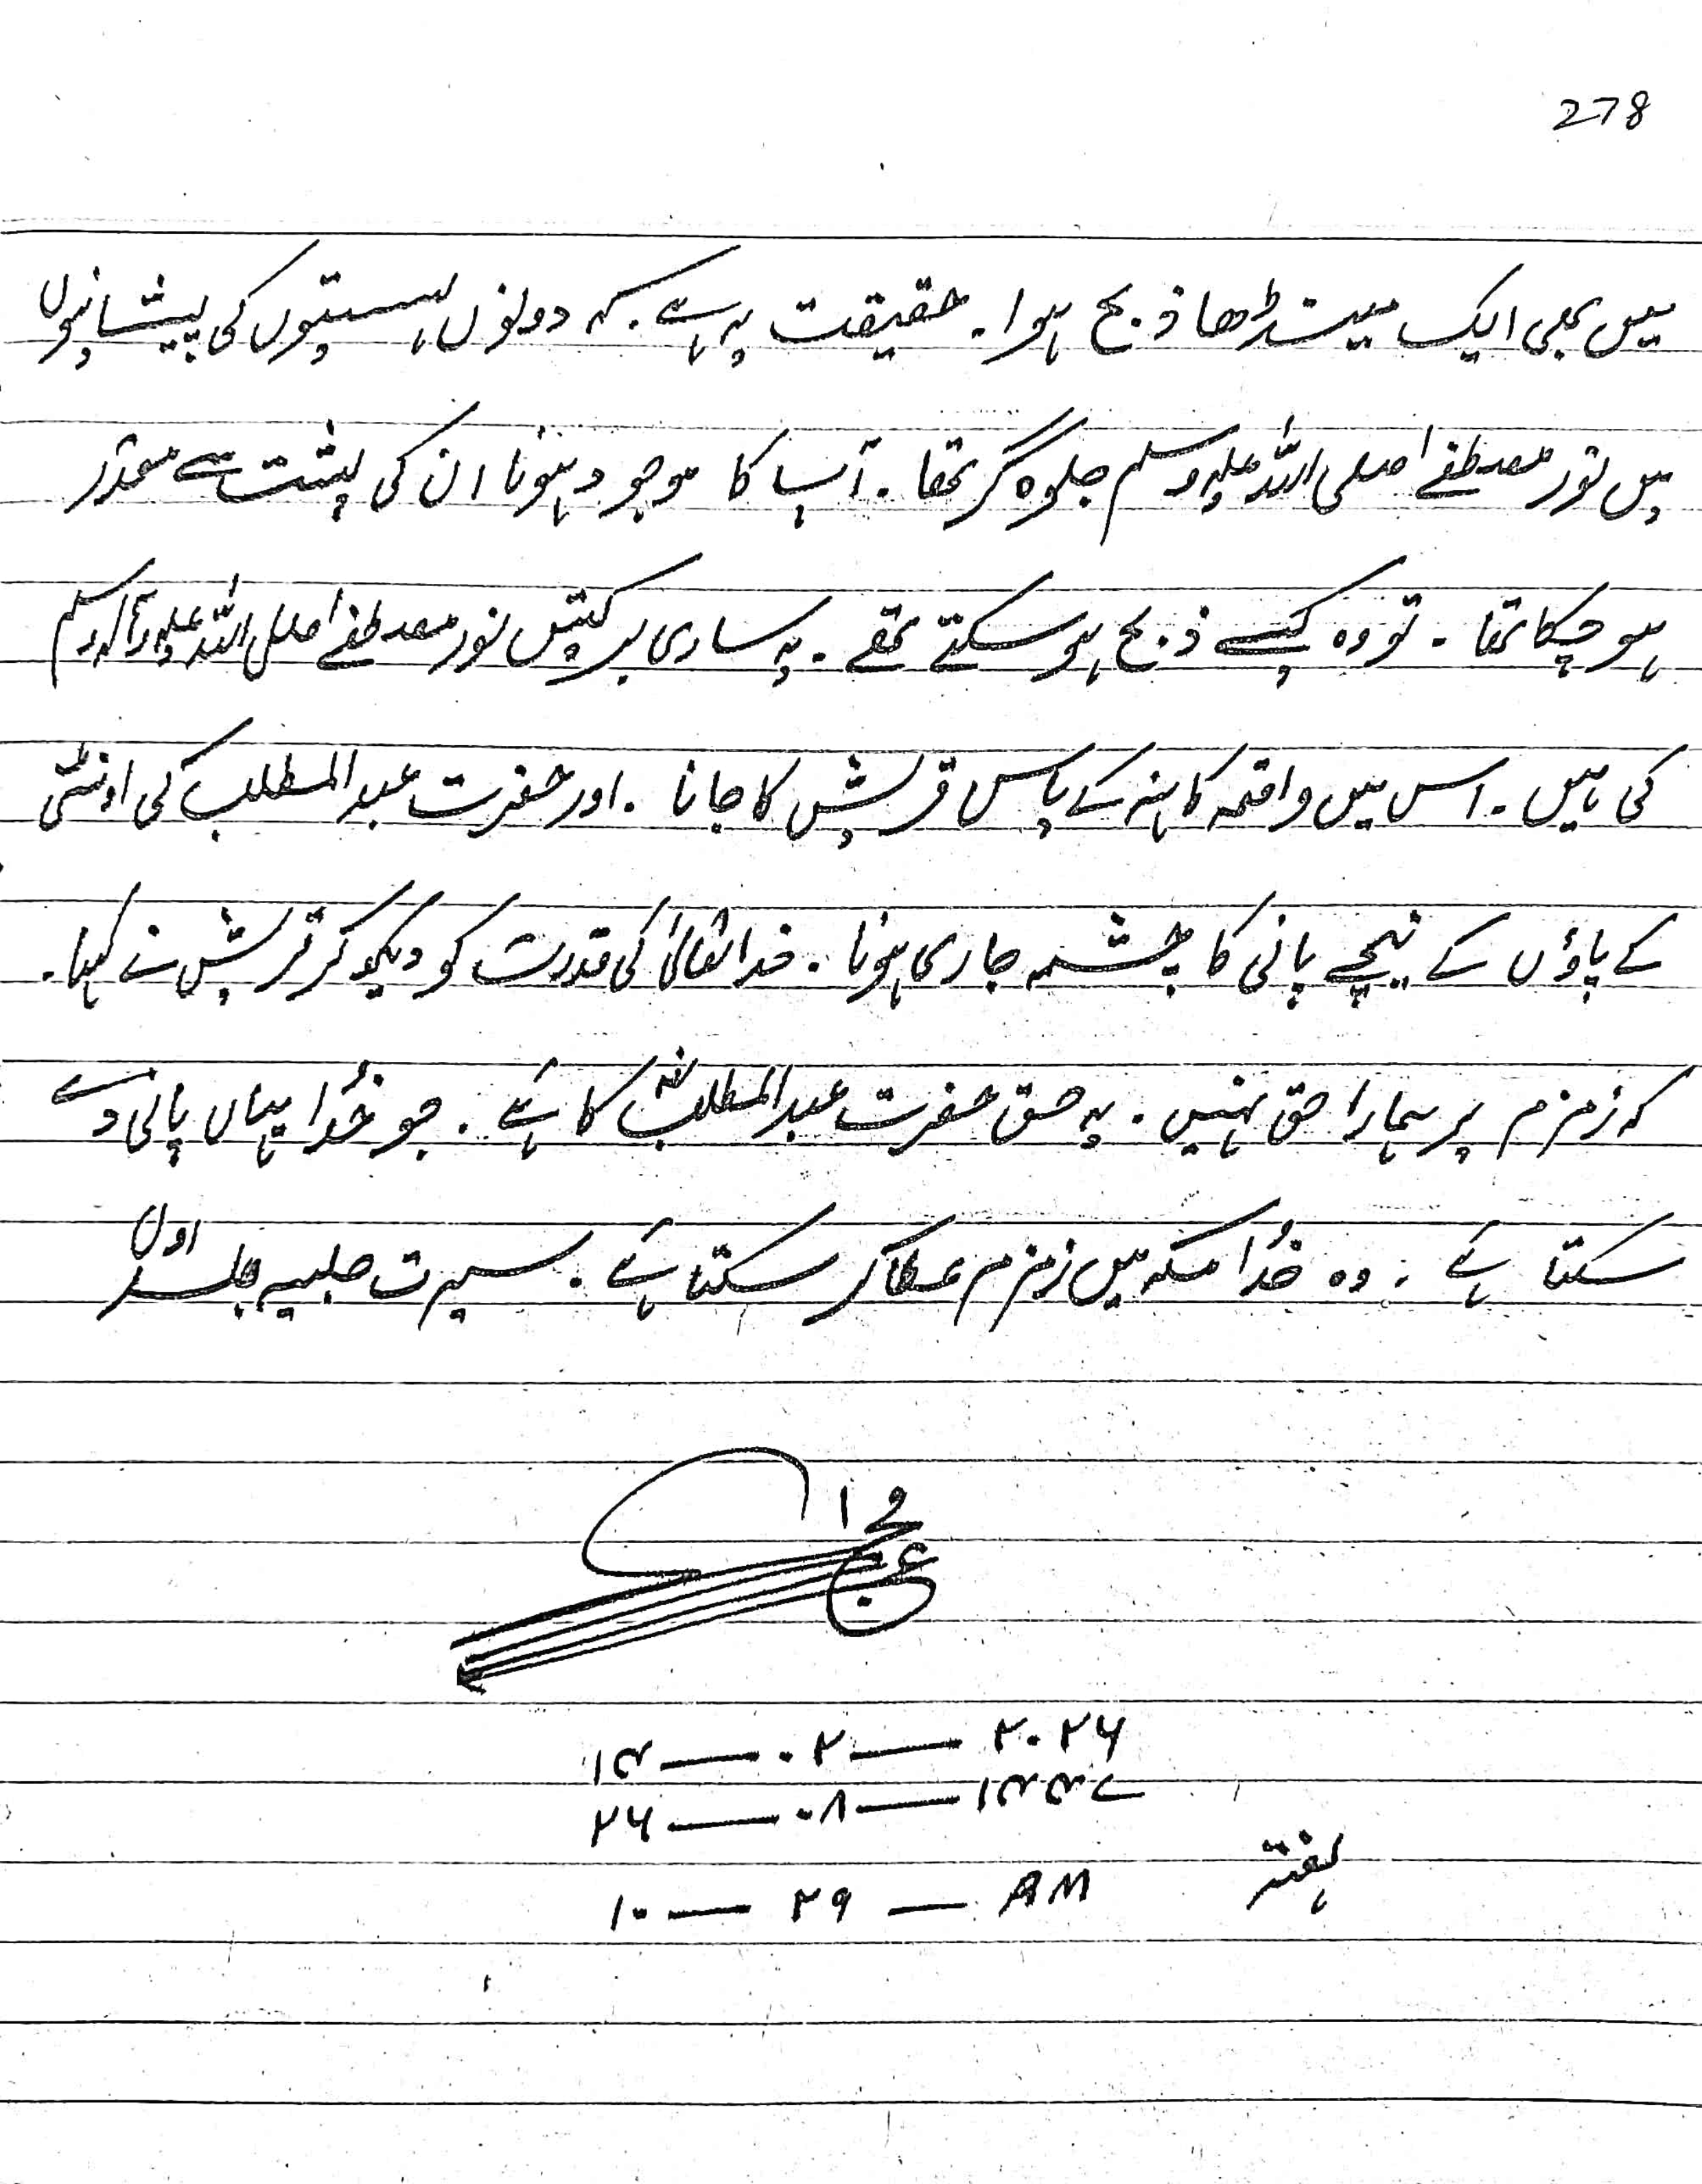 278
میں بھی ایک مینڈھا ذبح ہوا۔ حقیقت یہ ہے۔ کہ دونوں ہستیوں کی پیشانیوں
میں نور مصطفےٰ صلی اللہ علیہ وسلم جلوہ گر تھا۔ آپ کا موجود ہونا ان کی پشت سے مقدر
ہو چکا تھا۔ تو وہ کیسے ذبح ہو سکتے تھے۔ یہ ساری برکتیں نور مصطفےٰ صلی اللہ علیہ وآلہ وسلم
کی ہیں۔ اس میں واقعہ کاہنہ کے پاس قریش کا جانا۔ اور حضرت عبدالمطلب کی اونٹنی
کے پاؤں کے نیچے پانی کا چشمہ جاری ہونا۔ خدا تعالیٰ کی قدرت کو دیکھ کر قریش نے کہا۔
کہ زمزم پر ہمارا حق نہیں۔ یہ حق حضرت عبدالمطلبؓ کا ہے۔ جو خُدا یہاں پانی دے
سکتا ہے۔ وہ خُدا مکہ میں زمزم عطا کر سکتا ہے۔ سیرت حلبیہ جلد اول
۱۴ — ۰۲ — ۲۰۲۶
۲۶ — ۰۸ — ۱۴۴۷
ہفتہ
۱۰ — ۲۹ — AM